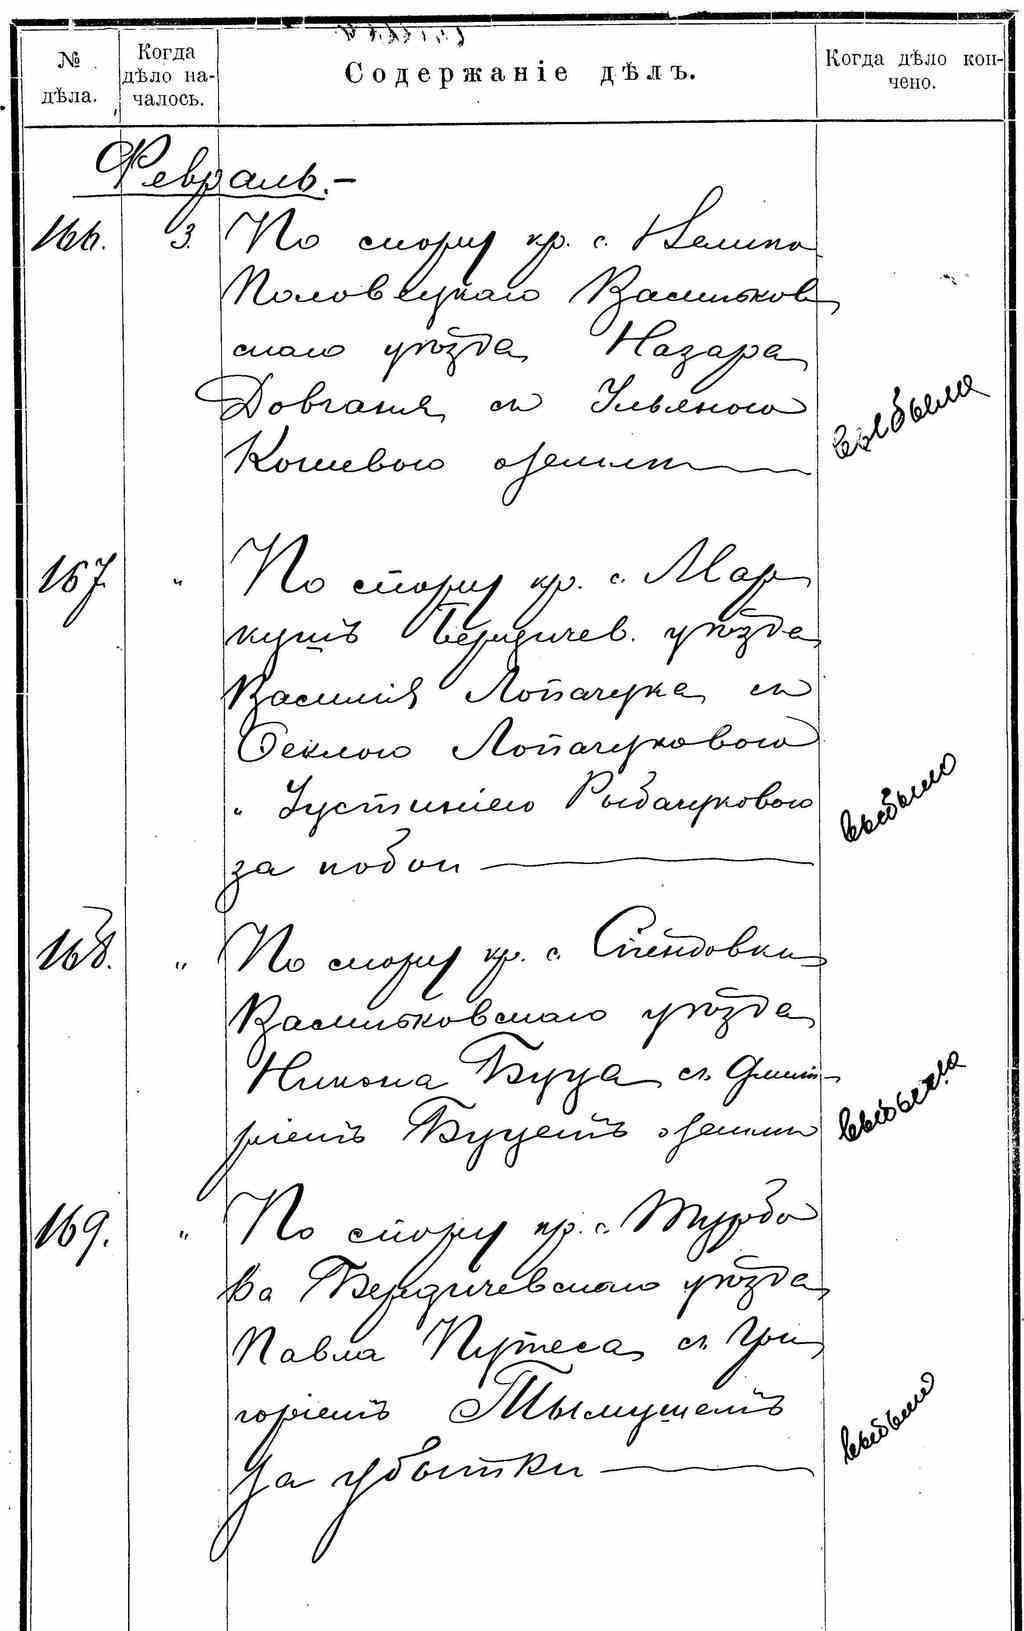 № дѣла.
Когда дѣло на-
чалось.
Содержаніе дѣлъ.
Когда дѣло кон-
чено.
Февраль.-
166. 3. По спору кр. с. Велико
Половецкаго Васильков
скаго уѣзда Назара
Довганя съ Ульяною
Кошевою о землѣ
выбыло
167. " По спору кр. с. Мар
кушъ Бердичев. уѣзда
Василія Лопачука съ
Феклою Лопачуковою
и Іустиніею Рыбачуковою
за побои
выбыло
168. " По спору кр. с.
Васильковскаго уѣзда
Никона Буца съ Дмит-
ріемъ Буцемъ о земли
выбыло
169. " По спору кр. с. Турбо
ва Бердичевскаго уѣзда
Павла Путеса съ Гри
горіемъ Тымушемъ
за убытки
выбыло